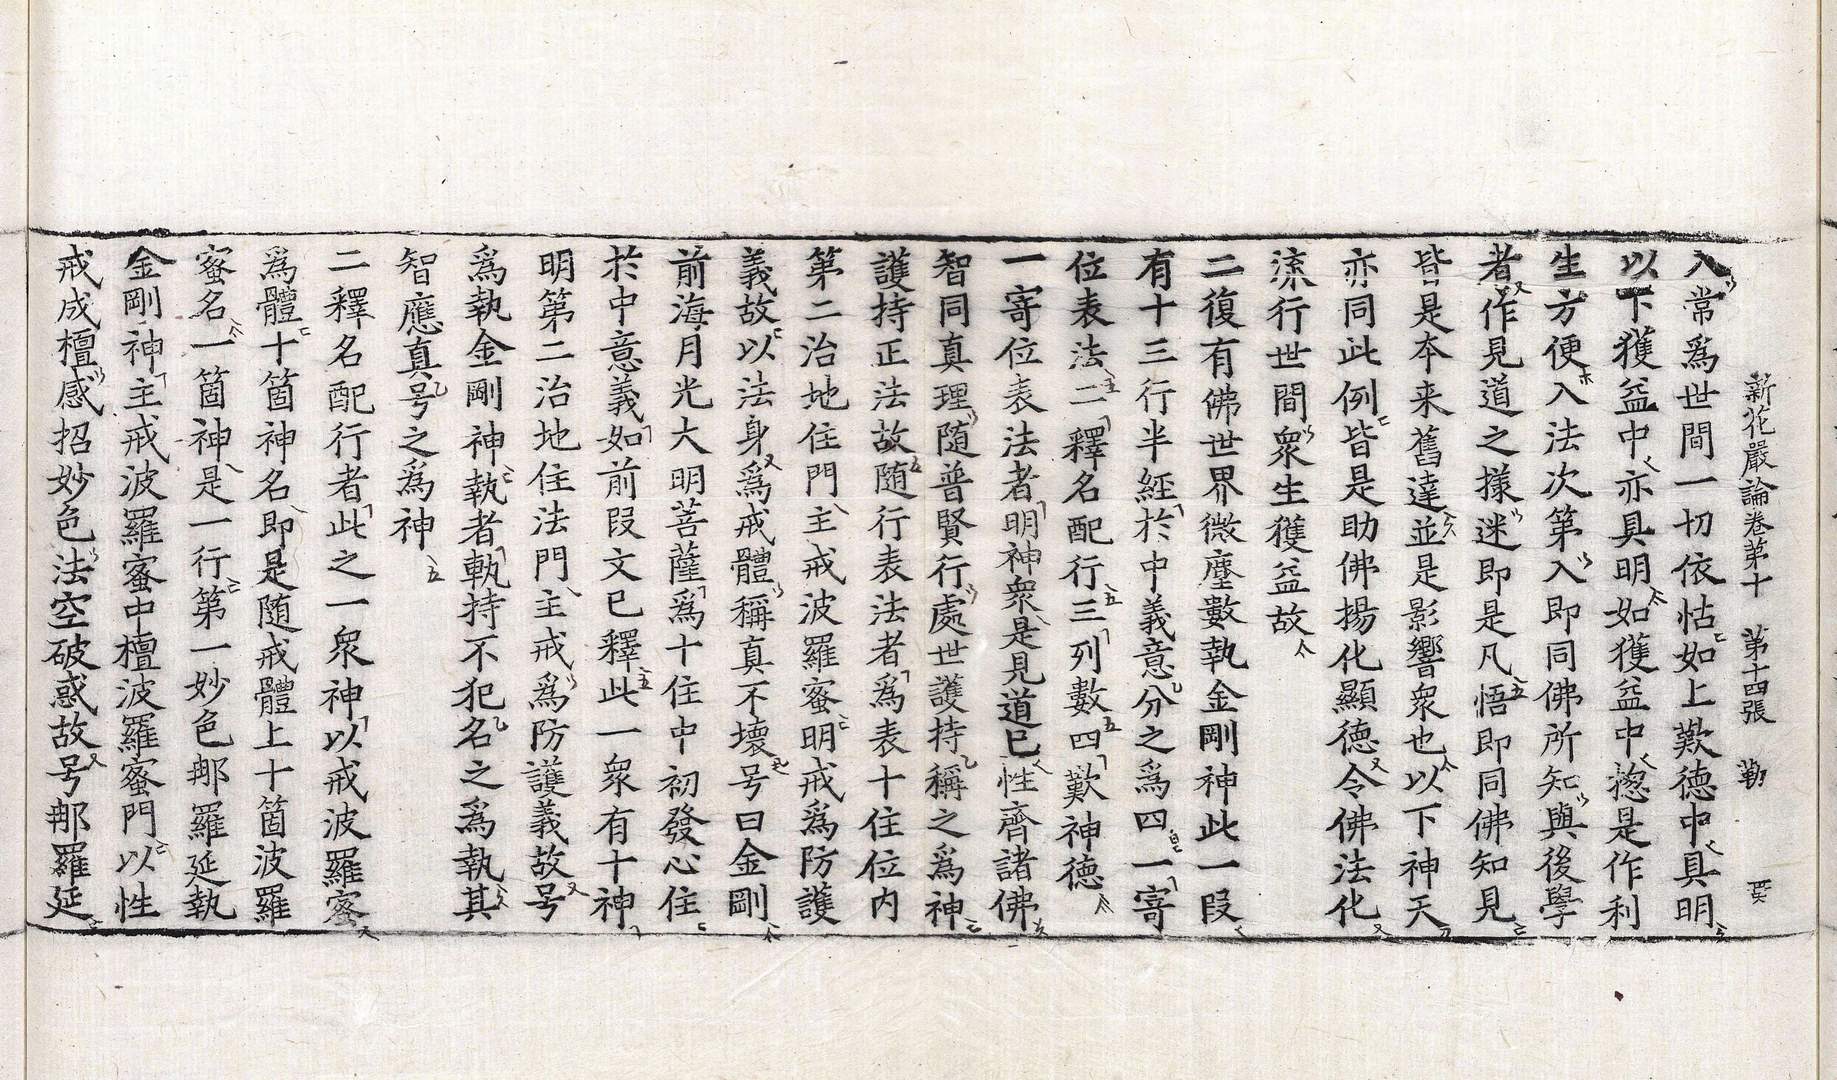 新花嚴論卷第十　第十四張　勒
入常爲世間一切依怙如上歎德中具明
以下獲益中亦具明如獲益中揔是作利
生方便入法次第入即同佛所知與後學
者作見道之㨾迷即是凡悟即同佛知見
皆是本来舊達並是影響衆也以下神天
亦同此例皆是助佛揚化顯德令佛法化
流行世間衆生獲益故
二復有佛世界微塵數執金剛神此一段
有十三行半經於中義意分之爲四一寄
位表法二釋名配行三列數四歎神德
一寄位表法者明神衆是見道已性齊諸佛
智同真理随普賢行處世護持稱之爲神
護持正法故随行表法者爲表十住位内
第二治地住門主戒波羅蜜明戒爲防護
義故以法身爲戒體稱真不壞号曰金剛
前海月光大明菩薩爲十住中初發心住
於中意義如前段文已釋此一衆有十神
明第二治地住法門主戒爲防護義故号
爲執金剛神執者執持不犯名之爲執其
智應真号之爲神
二釋名配行者此之一衆神以戒波羅蜜
爲體十箇神名即是随戒體上十箇波羅
蜜名一箇神是一行第一妙色郍羅延執
金剛神主戒波羅蜜中檀波羅蜜門以性
戒成檀感招妙色法空破惑故号郍羅延